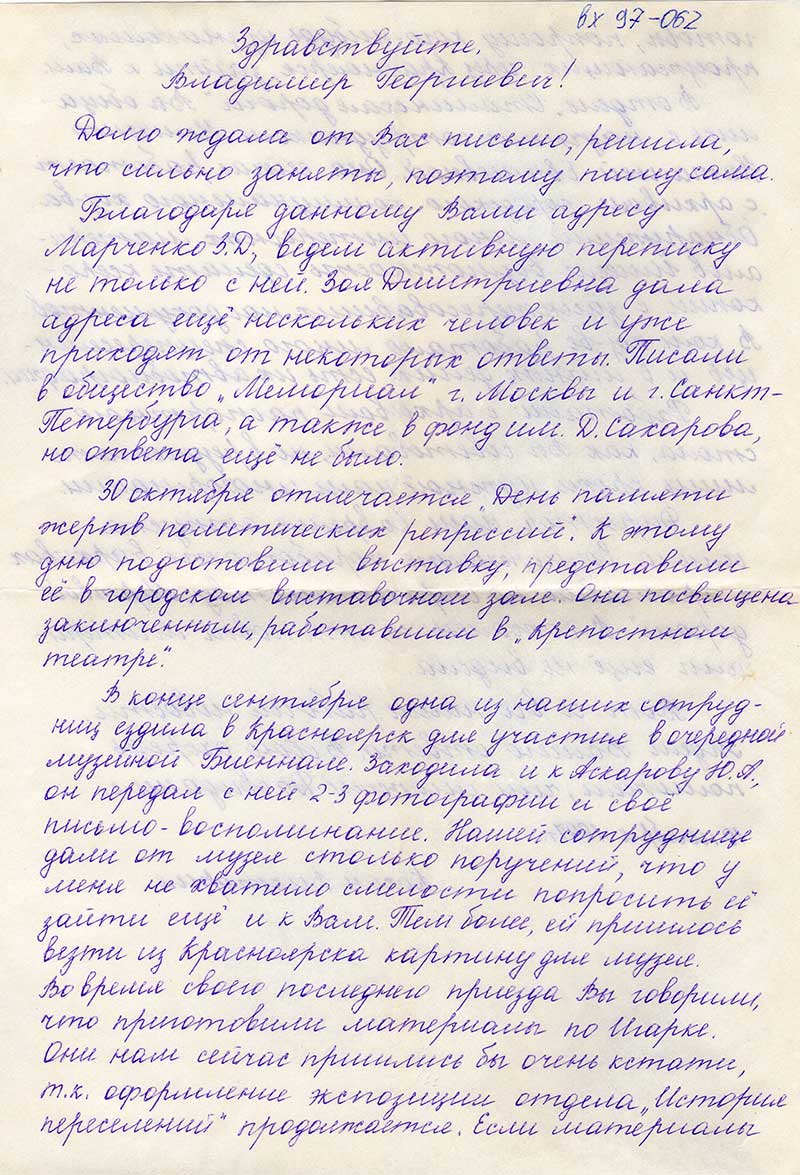 вх 97-062
Здравствуйте,
Владимир Георгиевич!
Долго ждала от Вас письмо, решила,
что сильно заняты, поэтому пишу сама.
Благодаря данному Вами адресу
Марченко З.Д., ведем активную переписку
не только с ней. Зоя Дмитриевна дала
адреса ещё нескольких человек и уже
приходят от некоторых ответы. Писали
в общество „Мемориал" г. Москвы и г. Санкт-
Петербурга, а также в фонд им. Д. Сахарова,
но ответа ещё не было.
30 октября отмечается „День памяти
жертв политических репрессий". К этому
дню подготовили выставку, представили
её в городском выставочном зале. Она посвящена
заключенным, работавшим в „Крепостном
театре".
В конце сентября одна из наших сотруд-
ниц ездила в Красноярск для участия в очередной
музейной Биеннале. Заходила и к Аскарову Ю.А,
он передал с ней 2-3 фотографии и своё
письмо-воспоминание. Нашей сотруднице
дали от музея столько поручений, что у
меня не хватило смелости попросить её
зайти ещё и к Вам. Тем более, ей пришлось
везти из Красноярска картину для музея.
Во время своего последнего приезда Вы говорили,
что приготовили материалы по Игарке.
Они нам сейчас пришлись бы очень кстати,
т.к. оформление экспозиции отдела „История
переселений" продолжается. Если материалы